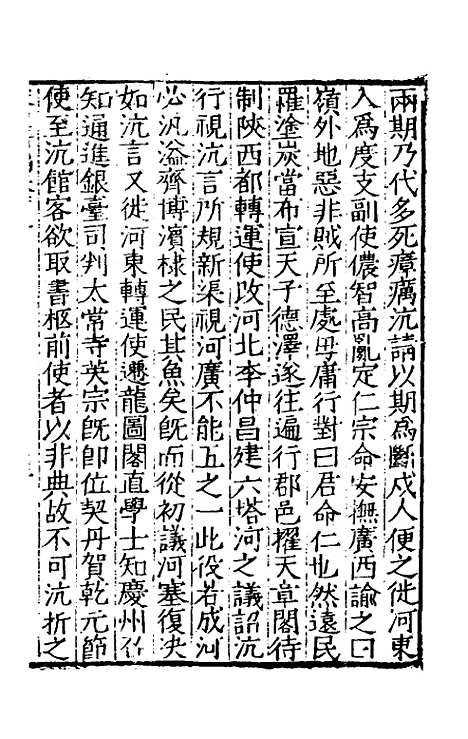 兩期乃代多死瘴癘沆請以期爲斷戍人便之徙河東
入爲度支副使儂智高亂定仁宗命安撫廣西諭之曰
嶺外地惡非賊所至處毋庸行對曰君命仁也然遠民
罹塗炭當布宣天子德澤遂往遍行郡邑擢天章閣待
制陝西都轉運使改河北李仲昌建六塔河之議詔沆
行視沆言所規新渠視河廣不能五之一此役若成河
必汎溢齊博濱棣之民其魚矣旣而從初議河塞復決
如沆言又徙河東轉運使遷龍圖閣直學士知慶州
知通進銀臺司判太常寺英宗旣卽位契丹賀乾元節
使至沆館客欲取書柩前使者以非典故不可沆折之